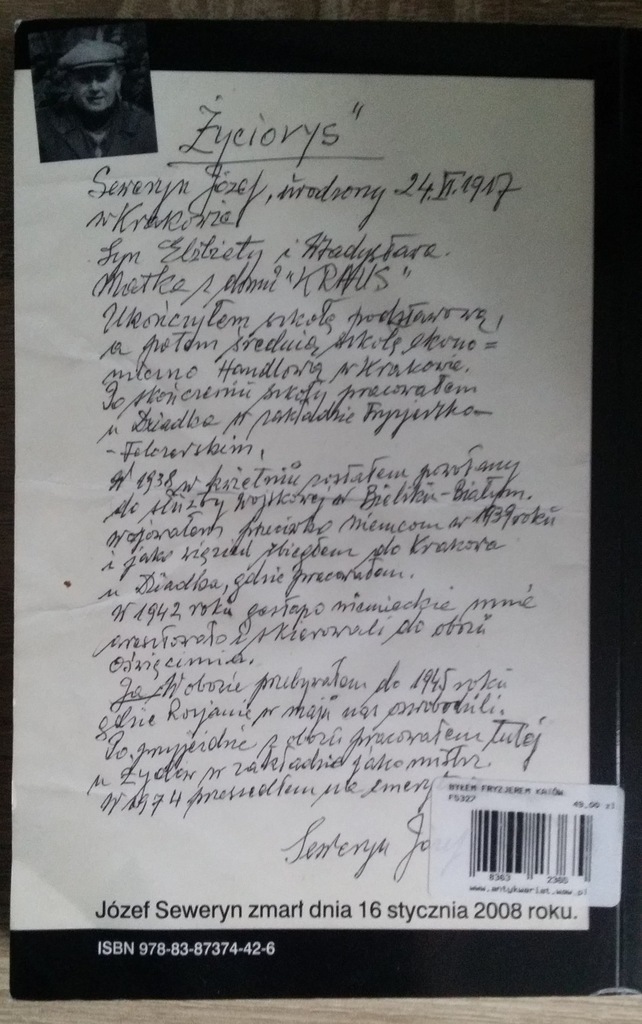 Życiorys"
Seweryn Józef, urodzony 24.VI.1917
w Krakowie
Syn Elżbiety i Władysława.
Matka z domu "KRAUS"
Ukończyłem szkołę podstawową,
a potem średnią szkołę ekono=
miczno Handlową w Krakowie.
Po skończeniu szkoły pracowałem
u Dziadka w zakładzie Fryzjersko-
-Felczerskim,
W 1938 w kwietniu zostałem powołany
do służby wojskowej w Bielsku-Białym.
wojowałem przeciwko Niemcom w 1939 roku
i jako więzień zbiegłem do Krakowa
u Dziadka, gdzie pracowałem.
W 1942 roku gestapo niemieckie mnie
aresztowało i skierowali do obozu
Oświęcimia.
Ja W obozie przebywałem do 1945 roku
gdzie Rosjanie w maju nas oswobodzili.
Po przyjeździe z obozu pracowałem tutaj
u Żydów w zakładzie jako mistrz.
W 1974 przeszedłem na
Seweryn
BYŁEM FRYZJEREM KATÓW
F5327
49,00 zł
8363 2365
www.antykwariat.waw.pl
Józef Seweryn zmarł dnia 16 stycznia 2008 roku.
ISBN 978-83-87374-42-6